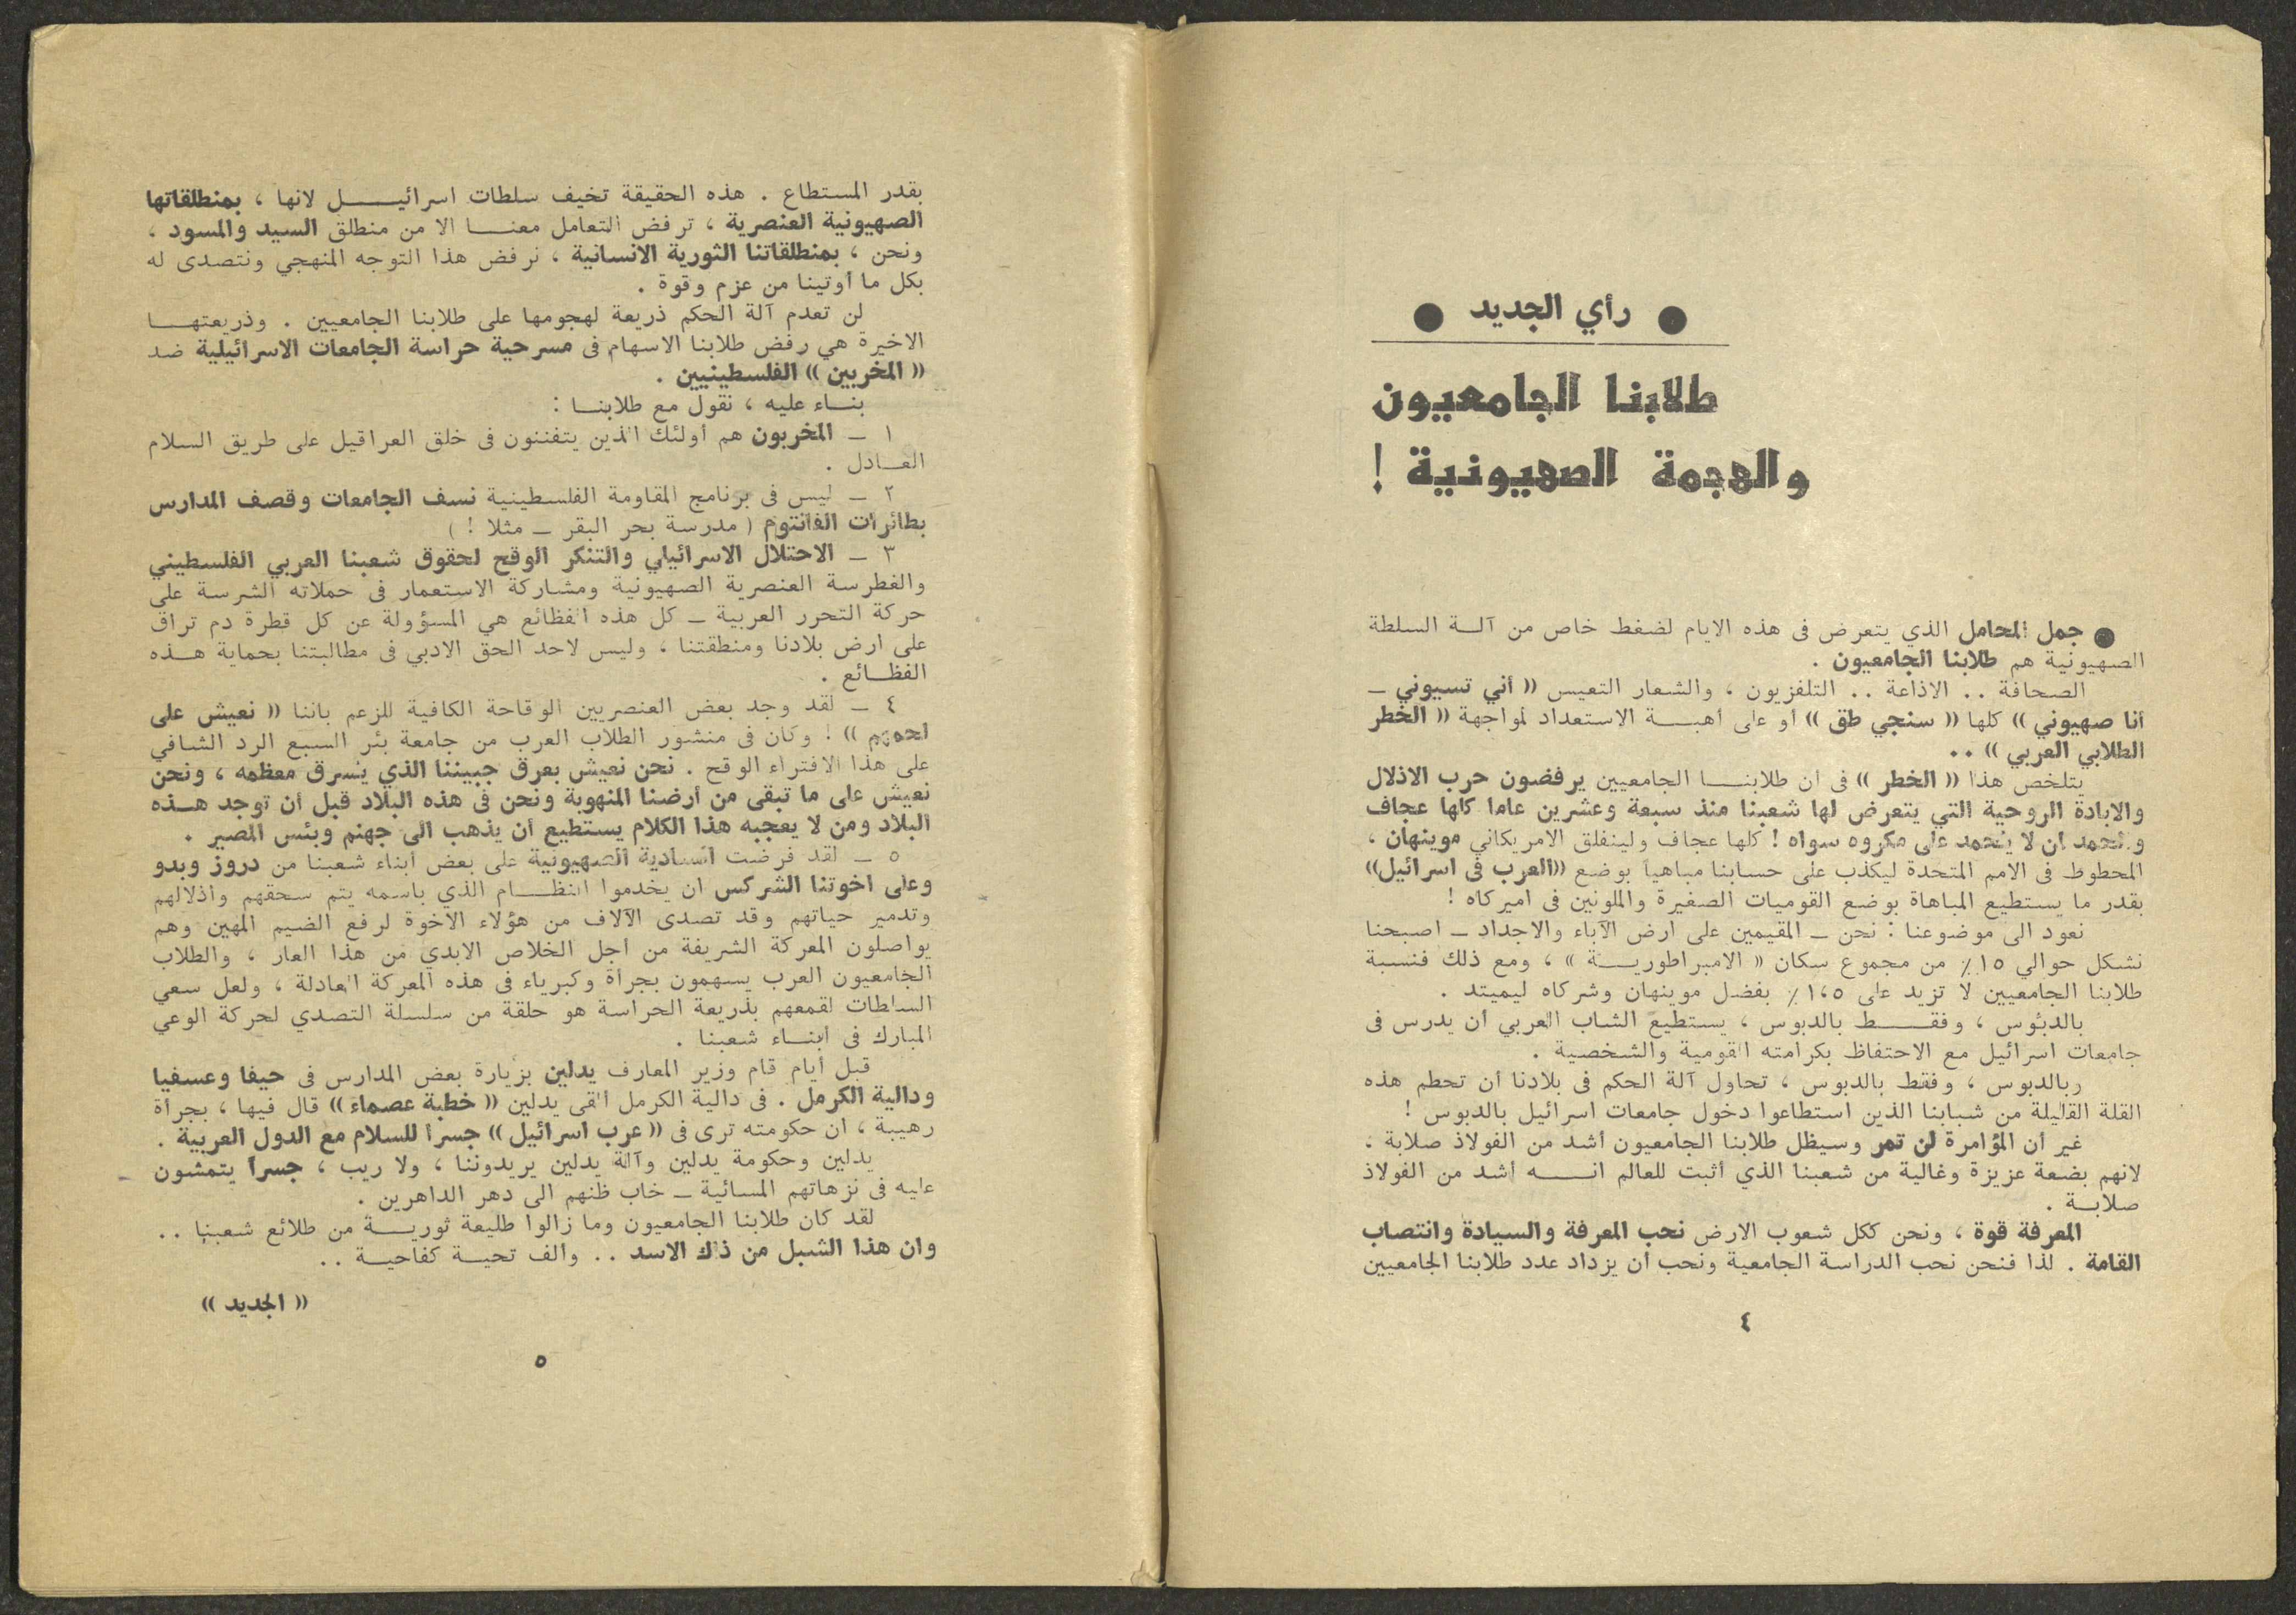 ● رأي الجديد ●
طلابنا الجامعيون
والهجمة الصهيونية !
● جمل المحامل الذي يتعرض فى هذه الايام لضغط خاص من آلــة السلطة
الصهيونية هم طلابنا الجامعيون .
الصحافة .. الاذاعة .. التلفزيون ، والشعار التعيس (( أني تسيوني ــ
أنا صهيوني )) كلها (( سنجي طق )) أو على أهبــة الاستعداد لمواجهة (( الخطر
الطلابي العربي )) ..
يتلخص هذا (( الخطر )) فى ان طلابنـــا الجامعيين يرفضون حرب الاذلال
والابادة الروحية التي يتعرض لها شعبنا منذ سبعة وعشرين عاما كلها عجاف
ونحمد ان لا يحمد على مكروه سواه ! كلها عجاف ولينفلق الامريكاني موينهان ،
المحطوط فى الامم المتحدة ليكذب على حسابنا مباهياً بوضع ((العرب فى اسرائيل))
بقدر ما يستطيع المباهاة بوضع القوميات الصغيرة والملونين فى اميركاه !
نعود الى موضوعنا : نحن ــ المقيمين على ارض الآباء والاجداد ــ اصبحنا
نشكل حوالي ١٥٪ من مجموع سكان (( الامبراطوريــة )) ، ومع ذلك فنسبة
طلابنا الجامعيين لا تزيد على ١،٥٪ بفضل موينهان وشركاه ليميتد .
بالدبوس ، وفقـــط بالدبوس ، يستطيع الشاب العربي أن يدرس فى
جامعات اسرائيل مع الاحتفاظ بكرامته القومية والشخصية .
وبالدبوس ، وفقط بالدبوس ، تحاول آلة الحكم فى بلادنا أن تحطم هذه
القلة القليلة من شبابنا الذين استطاعوا دخول جامعات اسرائيل بالدبوس !
غير أن المؤامرة لن تمر وسيظل طلابنا الجامعيون أشد من الفولاذ صلابة .
لانهم بضعة عزيزة وغالية من شعبنا الذي أثبت للعالم انــــه أشد من الفولاذ
صلابــة .
المعرفة قوة ، ونحن ككل شعوب الارض نحب المعرفة والسيادة وانتصاب
القامة . لذا فنحن نحب الدراسة الجامعية ونحب أن يزداد عدد طلابنا الجامعيين
٤
بقدر المستطاع . هذه الحقيقة تخيف سلطات اسرائيــــل لانها ، بمنطلقاتها
الصهيونية العنصرية ، ترفض التعامل معنـــا الا من منطلق السيد والمسود ،
ونحن ، بمنطلقاتنا الثورية الانسانية ، نرفض هذا التوجه المنهجي ونتصدى له
بكل ما أوتينا من عزم وقوة .
لن تعدم آلة الحكم ذريعة لهجومها على طلابنا الجامعيين . وذريعتهـــا
الاخيرة هي رفض طلابنا الاسهام فى مسرحية حراسة الجامعات الاسرائيلية ضد
(( المخربين )) الفلسطينيين .
بنــاء عليه ، نقول مع طلابنــا :
١ ــ المخربون هم أولئك الذين يتفننون فى خلق العراقيل على طريق السلام
العــادل .
٢ ــ ليس فى برنامج المقاومة الفلسطينية نسف الجامعات وقصف المدارس
بطائرات الفانتوم ( مدرسة بحر البقر ــ مثلا ! )
٣ ــ الاحتلال الاسرائيلي والتنكر الوقح لحقوق شعبنا العربي الفلسطيني
والغطرسة العنصرية الصهيونية ومشاركة الاستعمار فى حملاته الشرسة على
حركة التحرر العربية ــ كل هذه الفظائع هي المسؤولة عن كل قطرة دم تراق
على ارض بلادنا ومنطقتنا ، وليس لاحد الحق الادبي فى مطالبتنا بحماية هــذه
الفظــائع .
٤ ــ لقد وجد بعض العنصريين الوقاحة الكافية للزعم باننا (( نعيش على
لحمهم )) ! وكان فى منشور الطلاب العرب من جامعة بئر السبع الرد الشافي
على هذا الافتراء الوقح . نحن نعيش بعرق جبيننا الذي يسرق معظمه ، ونحن
نعيش على ما تبقى من أرضنا المنهوبة ونحن فى هذه البلاد قبل أن توجد هــذه
البلاد ومن لا يعجبه هذا الكلام يستطيع أن يذهب الى جهنم وبئس المصير .
٥ ــ لقد فرضت السادية الصهيونية على بعض أبناء شعبنا من دروز وبدو
وعلى اخوتنا الشركس ان يخدموا النظــام الذي باسمه يتم سحقهم واذلالهم
وتدمير حياتهم وقد تصدى الآلاف من هؤلاء الاخوة لرفع الضيم المهين وهم
يواصلون المعركة الشريفة من أجل الخلاص الابدي من هذا العار ، والطلاب
الجامعيون العرب يسهمون بجرأة وكبرياء فى هذه المعركة العادلة ، ولعل سعي
السلطات لقمعهم بذريعة الحراسة هو حلقة من سلسلة التصدي لحركة الوعي
المبارك فى ابنــاء شعبنا .
قبل أيام قام وزير المعارف يدلين بزيارة بعض المدارس فى حيفا وعسفيا
ودالية الكرمل . فى دالية الكرمل ألقى يدلين (( خطبة عصماء )) قال فيها ، بجرأة
رهيبة ، ان حكومته ترى فى (( عرب اسرائيل )) جسرا للسلام مع الدول العربية .
يدلين وحكومة يدلين وآلة يدلين يريدوننا ، ولا ريب ، جسرا يتمشون
عليه فى نزهاتهم المسائية ــ خاب ظنهم الى دهر الداهرين .
لقد كان طلابنا الجامعيون وما زالوا طليعة ثوريــة من طلائع شعبنا ..
وان هذا الشبل من ذاك الاسد .. والف تحيــة كفاحيــة ..
(( الجديد ))
٥